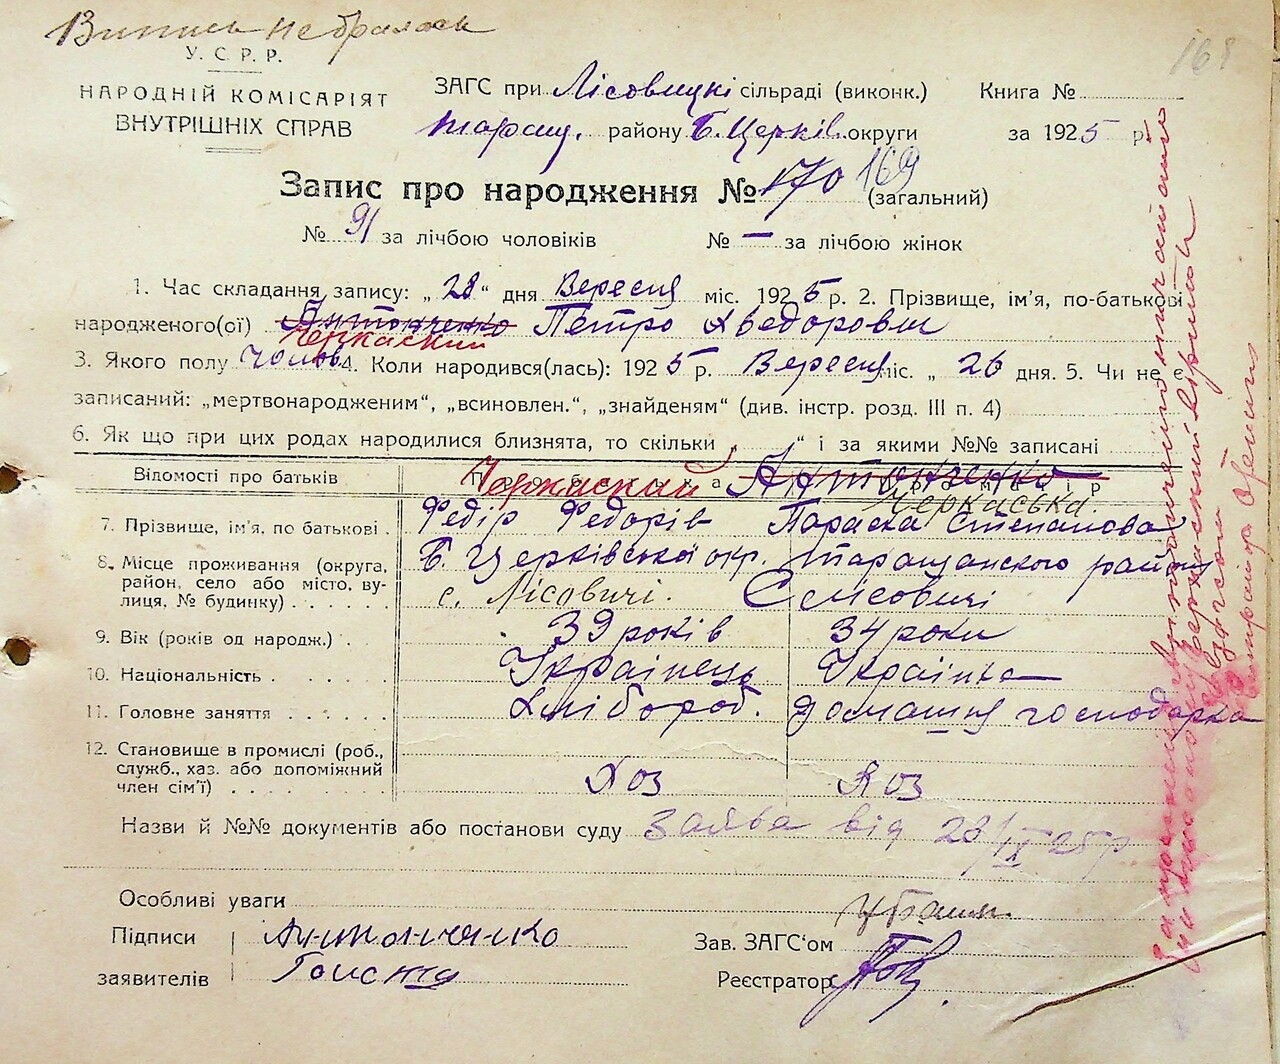 Випись не бралась
168
У. С. Р. Р.
НАРОДНІЙ КОМІСАРІЯТ
ВНУТРІШНІХ СПРАВ
ЗАГС при Лісовицкі сільраді (виконк.)
Таращ. району Б. Церків. округи
Книга №
за 1925 р.
Запис про народження № 170 169
(загальний)
№ 91 за лічбою чоловіків № — за лічбою жінок
1. Час складання запису: „28“ дня Вересня міс. 1925 р. 2. Прізвище, ім’я, по-батькові
народженого(ої) Антонченко Петро Хведорович
Черкаский
3. Якого полу чолов 4. Коли народився(лась): 1925 р. Вересня міс. „ 26 дня. 5. Чи не є
записаний: „мертвонародженим“, „всиновлен.“, „знайденям“ (див. інстр. розд. III п. 4)
6. Як що при цих родах народилися близнята, то скільки „ “ і за якими №№ записані
Відомості про батьків Черкаский Антонченко
Черкаська.
7. Прізвище, ім’я, по батькові . Федір Федорів Параска Степанова
8. Місце проживання (округа, район, село або місто, вулиця, № будинку) Б. Церківської окр. Таращанского району
с. Лісовичі. С Лісовичі
9. Вік (років од народж.) . 39 років 34 роки
10. Національність . . . . . Українець Українка
11. Головне заняття . . . . . Хлібороб. домашня господарка
12. Становище в промислі (роб., служб., хаз. або допоміжний член сім’ї) . . . . . . . . Хоз Хоз
Назви й №№ документів або постанови суду Заява від 28/IX 25 р.
Особливі уваги
Підписи Антонченко
заявителів
Зав. ЗАГС‘ом
Реєстратор